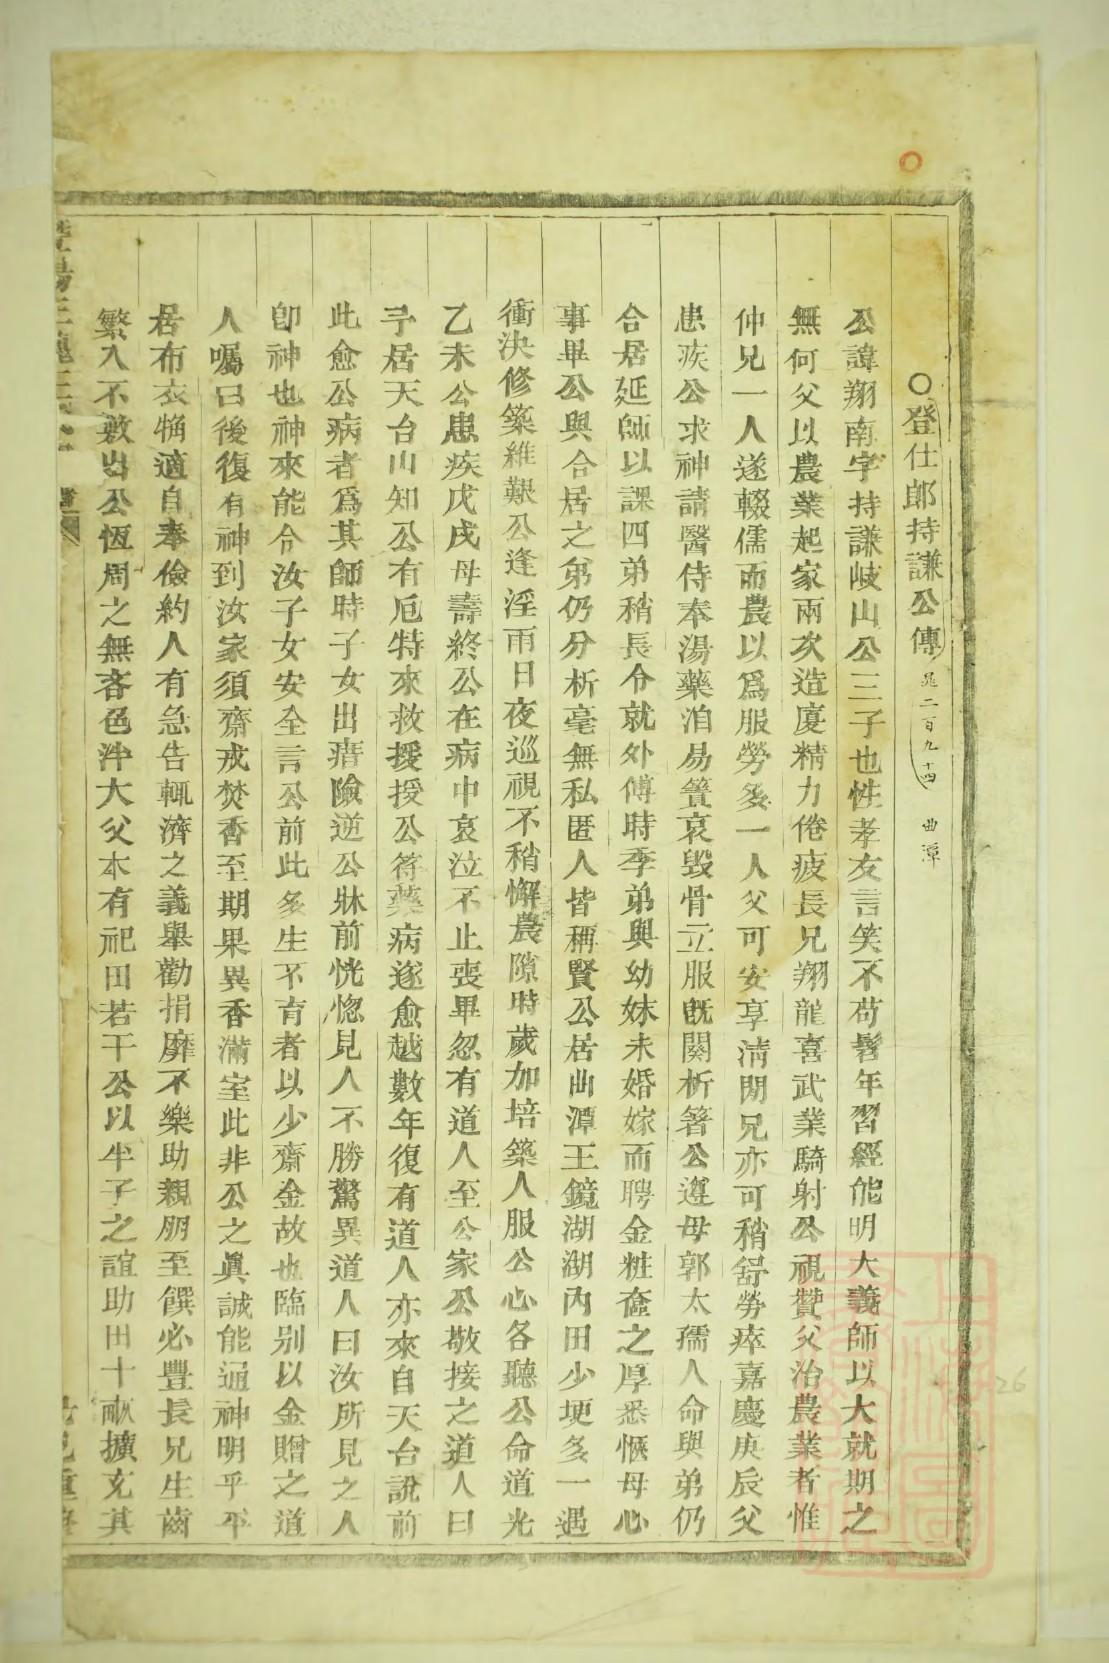 ○登仕郎持謙公傳 晁二百九十四 曲潭
公諱翔南字持謙岐山公三子也性孝友言笑不苟髫年習經能明大義師以大就期之
無何父以農業起家兩次造廈精力倦疲長兄翔龍喜武業騎射公視贊父治農業者惟
仲兄一人遂輟儒而農以爲服勞多一人父可安享清閒兄亦可稍舒勞瘁嘉慶庚辰父
患疾公求神請醫侍奉湯藥洎易簀哀毀骨立服旣闋析箸公遵母郭太孺人命與弟仍
合居延師以課四弟稍長令就外傅時季弟與幼妹未婚嫁而聘金粧奩之厚悉愜母心
事畢公與合居之弟仍分析毫無私匿人皆稱賢公居曲潭王鏡湖湖內田少埂多一遇
衝決修築維艱公逢淫雨日夜巡視不稍懈農隙時歲加培築人服公心各聽公命道光
乙未公患疾戊戌母壽終公在病中哀泣不止喪畢忽有道人至公家公敬接之道人曰
予居天台山知公有厄特來救援授公符藥病遂愈越數年復有道人亦來自天台說前
此愈公病者爲其師時子女出痦險逆公牀前恍惚見人不勝驚異道人曰汝所見之人
卽神也神來能令汝子女安全言公前此多生不育者以少齋金故也臨別以金贈之道
人囑曰後復有神到汝家須齋戒焚香至期果異香滿室此非公之眞誠能通神明乎平
居布衣犕適自奉儉約人有急告輒濟之義舉勸捐靡不樂助親朋至饌必豐長兄生齒
繁入不敷出公恆周之無吝色泮大父本有祀田若干公以半子之誼助田十畝擴充其